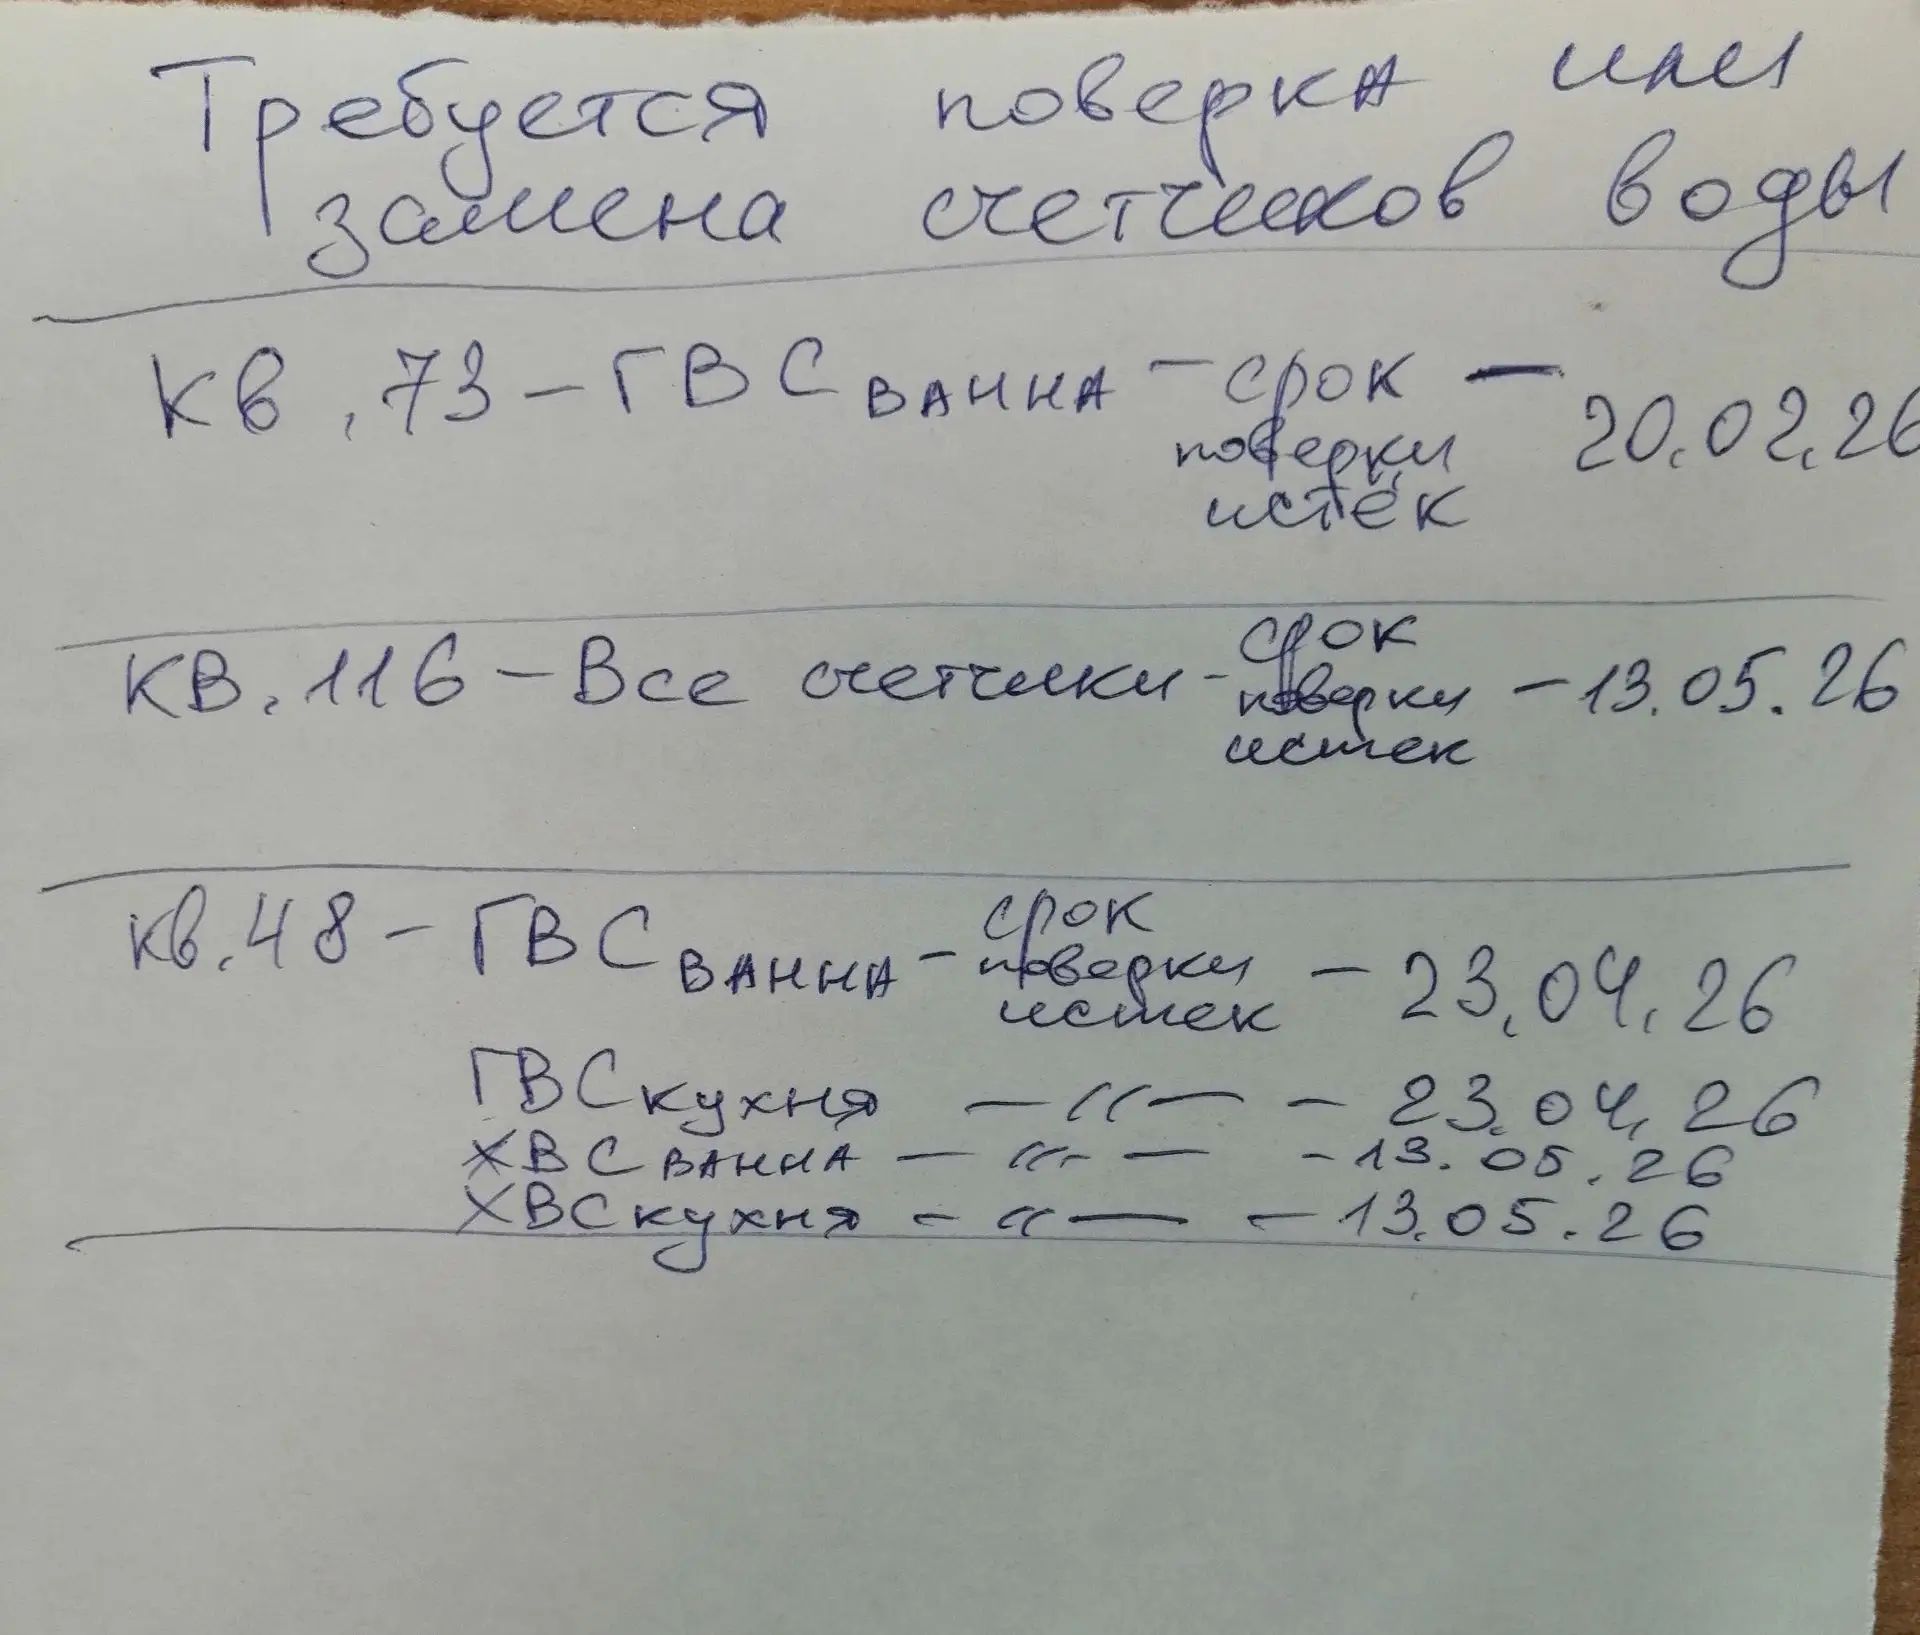 Требуется поверка или
замена счетчиков воды
кв. 73 - ГВС ванна - срок - 20.02.26
поверки
истёк
кв. 116 - Все счетчики - срок поверки истек - 13.05.26
кв. 48 - ГВС ванна - срок поверки истек - 23.04.26
ГВС кухня - " - - 23.04.26
ХВС ванна - " - - 13.05.26
ХВС кухня - " - - 13.05.26